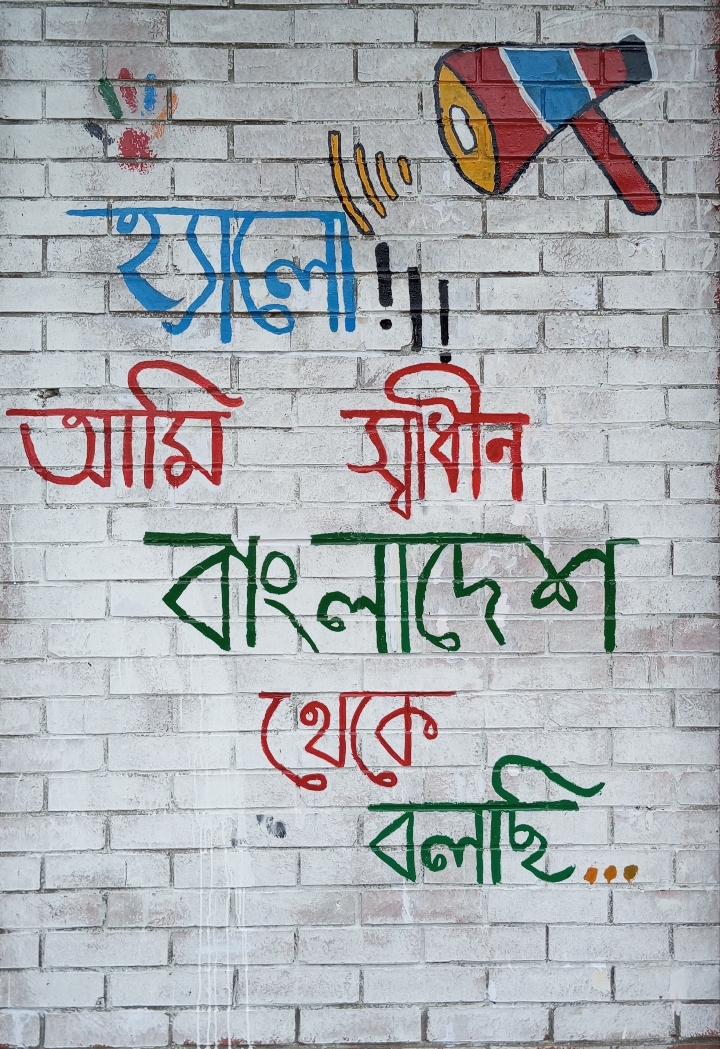 হ্যালো !!!
আমি স্বাধীন
বাংলাদেশ
থেকে
বলছি...